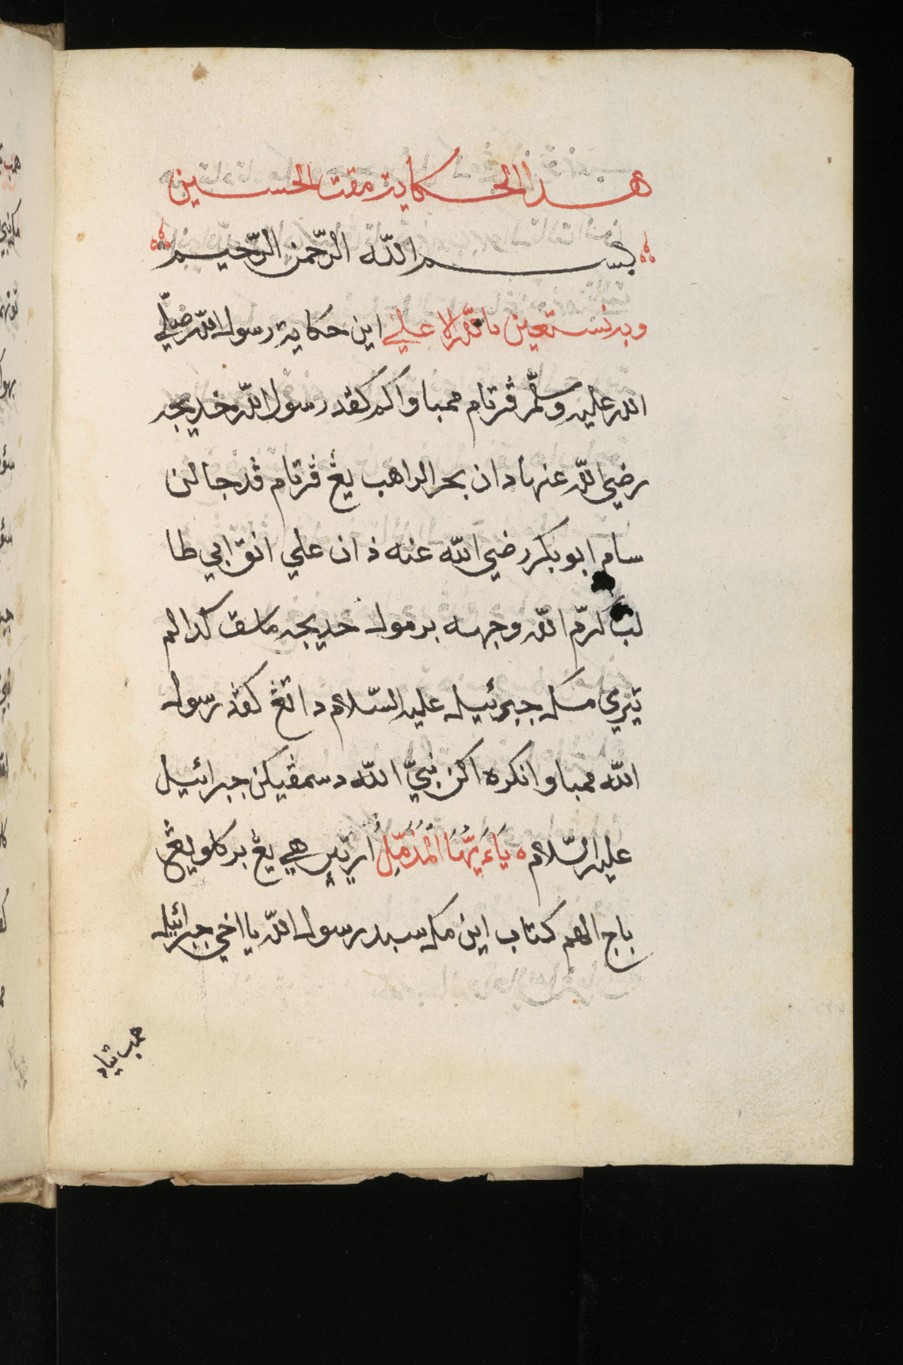 هذا الحكاية مقت الحسين
بسم الله الرّحمن الرّحيم
وبه نستعين بالله الاعلي اين حكاية رسول الله صلّي
الله عليه وسلّم ڤرتام ممباو اكم كڤد رسول الله خديجه
رضي الله عنها دان بحر الراهب يڠ ڤرتام ڤد جالن
سام ابو بكر رضي الله عنه دان علي انق ابي طا
لب كرّم الله وجهه برمول خديجه ماسق كدالم
تيري مك جبرئيل عليه السّلام داتڠ كڤد رسول
الله ممباو انكره اكن نبيّ الله دسمڤيكن جبرائيل
عليه السّلام يَاءَيُّهَا الْمُزَمِّلُ ارتيڽ هي يڠ بركلوبڠ
باج الهم كتاب اين مك سبد رسول الله يا اخي جبرائيل